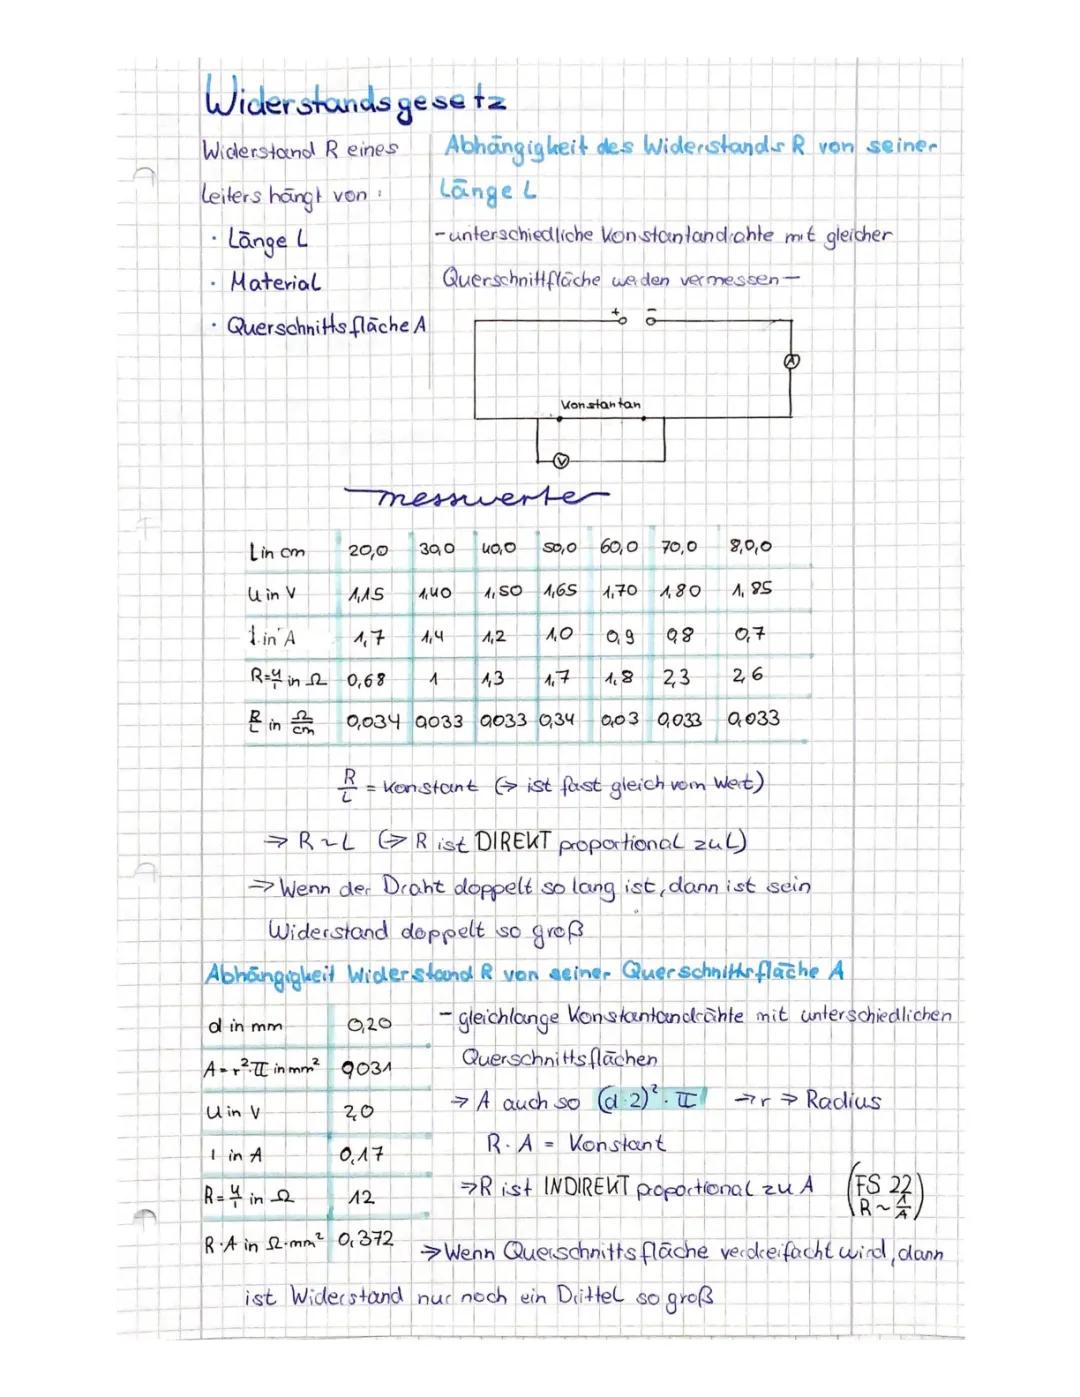 Widerstandsgesetz
Widerstand R eines
Leiters hängt von:
· Länge L
· Material
· Querschnittsfläche A
Abhängigkeit des Widerstands R von seiner
Länge L
- unterschiedliche Konstantandrähte mit gleicher
Querschnittfläche werden vermessen -
+ -
A
Konstantan
V
messwerte
L in cm 20,0 30,0 40,0 50,0 60,0 70,0 8,0,0
U in V 1,15 1,40 1,50 1,65 1,70 1,80 1,85
I in A 1,7 1,4 1,2 1,0 0,9 0,8 0,7
R=U/I in Ω 0,68 1 1,3 1,7 1,8 2,3 2,6
R/L in Ω/cm 0,034 0,033 0,033 0,34 0,03 0,033 0,033
R/L = Konstant (→ ist fast gleich vom Wert)
⇒ R ~ L (⇒ R ist DIREKT proportional zu L)
⇒ Wenn der Draht doppelt so lang ist, dann ist sein
Widerstand doppelt so groß
Abhängigkeit Widerstand R von seiner Querschnittsfläche A
d in mm 0,20
A=r²·π in mm² 0,031
U in V 2,0
I in A 0,17
R=U/I in Ω 12
R·A in Ω·mm² 0,372
- gleichlange Konstantandrähte mit unterschiedlichen
Querschnittsflächen
→ A auch so (d:2)²·π → r ⇒ Radius
R·A = Konstant
⇒ R ist INDIREKT proportional zu A (FS 22
R ~ 1/A)
⇒ Wenn Querschnittsfläche verdreifacht wird, dann
ist Widerstand nur noch ein Drittel so groß